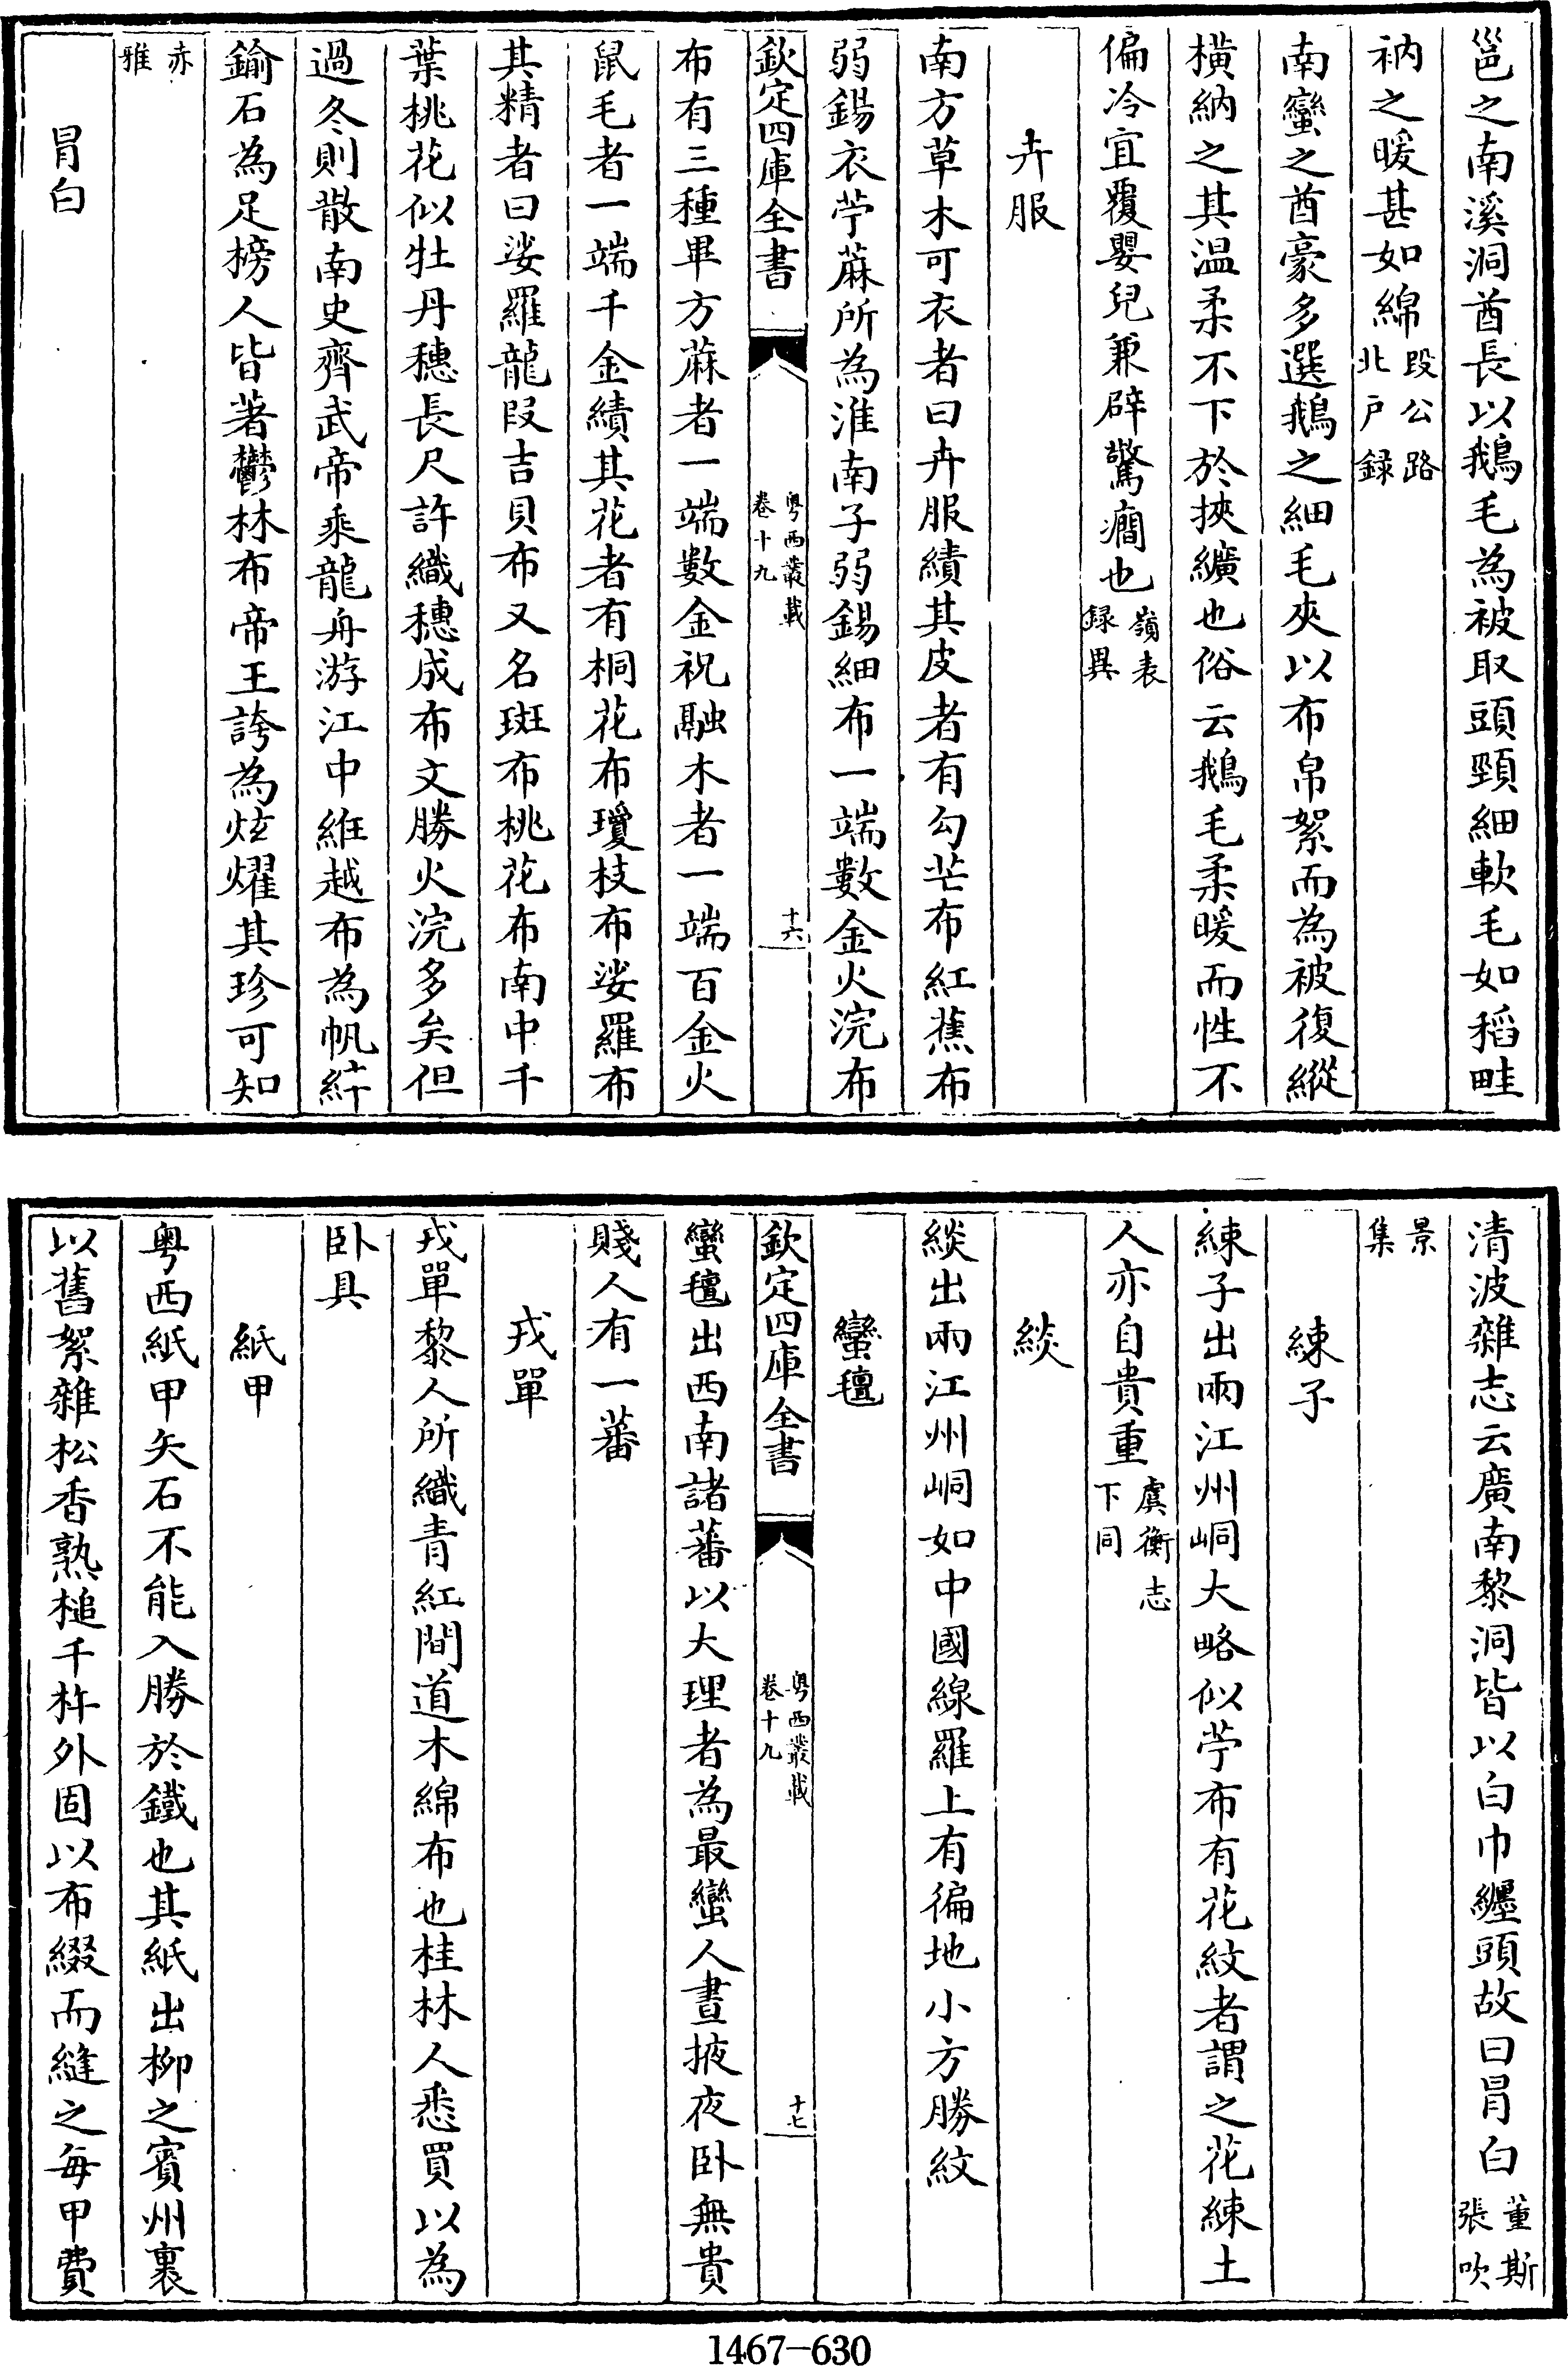 邕之南溪洞酋長以鵝毛為被取頭頸細軟毛如稻畦
衲之暖甚如綿段公路北戶録
南蠻之酋豪多選鵝之細毛夾以布帛絮而為被復縱
橫納之其温柔不下於挾纊也俗云鵝毛柔暖而性不
偏冷宜覆嬰兒兼辟驚癇也嶺表録異
卉服
南方草木可衣者曰卉服績其皮者有勾芒布紅蕉布
弱錫衣苧蔴所為淮南子弱錫細布一端數金火浣布
欽定四庫全書
粤西叢載
卷十九
十六
布有三種畢方蔴者一端數金祝融木者一端百金火
鼠毛者一端千金績其花者有桐花布瓊枝布娑羅布
其精者曰娑羅龍叚吉貝布又名斑布桃花布南中千
葉桃花似牡丹穗長尺許織穗成布文勝火浣多矣但
過冬則散南史齊武帝乘龍舟游江中維越布為帆綷
鍮石為足榜人皆著鬱林布帝王誇為炫燿其珍可知
赤雅
冒白
清波雜志云廣南黎洞皆以白巾纏頭故曰冒白董斯張吹
景集
綀子
綀子出兩江州峒大略似苧布有花紋者謂之花綀土
人亦自貴重虞衡志下同
緂
緂出兩江州峒如中國線羅上有徧地小方勝紋
蠻氊
欽定四庫全書
粤西叢載
卷十九
十七
蠻氊出西南諸蕃以大理者為最蠻人晝掖夜卧無貴
賤人有一蕃
戎單
戎單黎人所織青紅間道木綿布也桂林人悉買以為
卧具
紙甲
粤西紙甲矢石不能入勝於鐵也其紙出柳之賓州裏
以舊絮雜松香熟槌千杵外固以布綴而縫之每甲費
1467-630